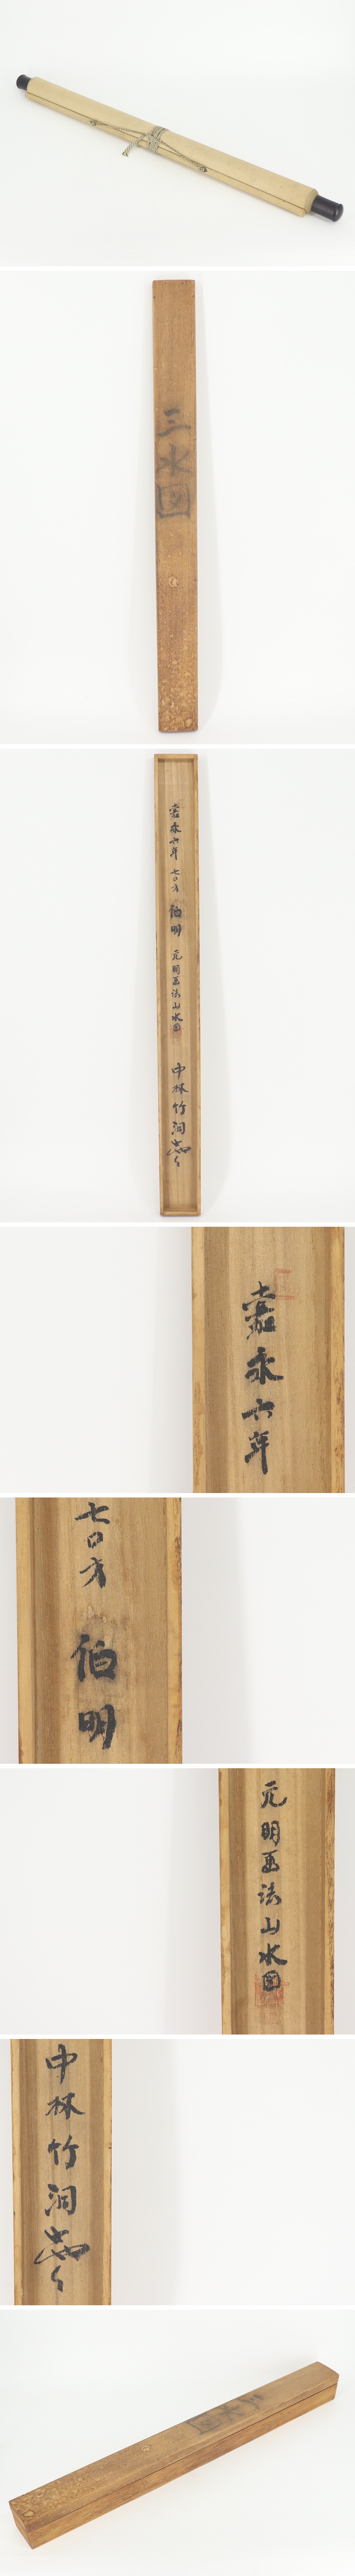 三水図
嘉永六年 七〇才 伯明 元明画法山水図 中林竹洞
嘉永六年
七〇才
伯明
元明画法山水図
中林竹洞